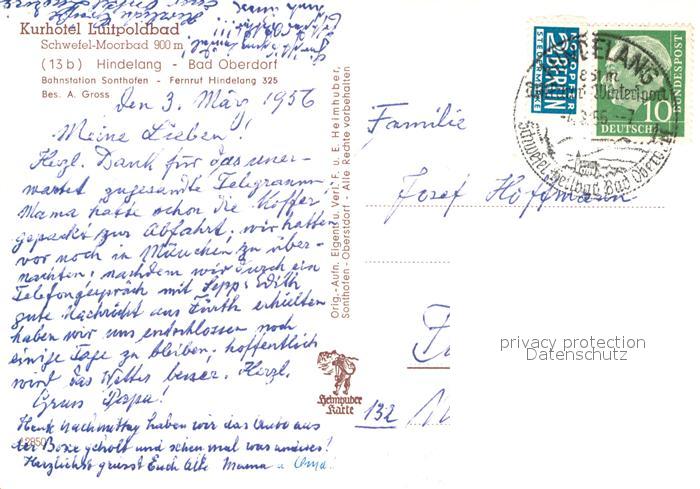 Kurhotel Luitpoldbad
Schwefel-Moorbad 900 m
(13b) Hindelang - Bad Oberdorf
Bahnstation Sonthofen - Fernruf Hindelang 325
Bes. A. Gross
Den 3. März 1956
Meine Lieben!
Herzl. Dank für das uner-
wartet zugesandte Telegramm,
Mama hatte schon die Koffer
gepackt zur Abfahrt, wir hatten
vor noch in München zu über-
nachten, nachdem wir durch ein
Telefongespräch mit Sepp u. Edith
gute Nachricht aus Fürth erhielten
haben wir uns entschlossen noch
einige Tage zu bleiben, hoffentlich
wird das Wetter besser. Herzl.
Gruss Papa!
Heute Nachmittag haben wir das Auto aus
der Boxe geholt und sehen mal was anderes!
Herzlichst grüsst Euch Alle Mama u Oma!
12850
Orig.-Aufn. Eigent. u. Verl. F. u. E. Heimhuber,
Sonthofen - Oberstdorf - Alle Rechte vorbehalten
Heimhuber
Karte
Familie
Josef Hoffmann
132
2 NOTOPFER
2 BERLIN
STEUERMARKE
10
DEUTSCHE
BUNDESPOST
HINDELANG
850 m
Schwefel-Heilbad Bad Oberdorf
privacy protection
Datenschutz